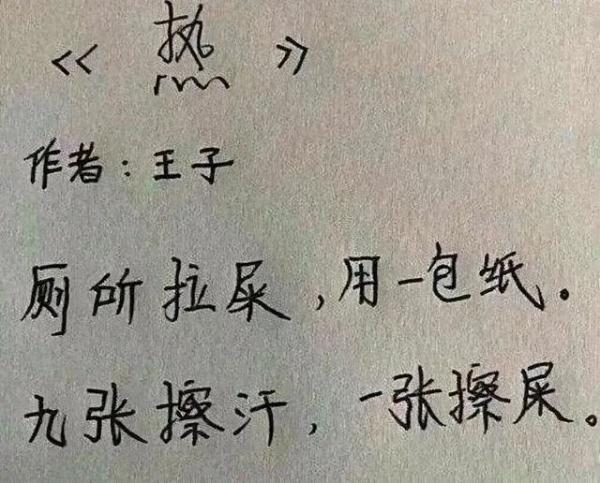 《热》
作者:王子
厕所拉屎,用一包纸。
九张擦汗,一张擦屎。